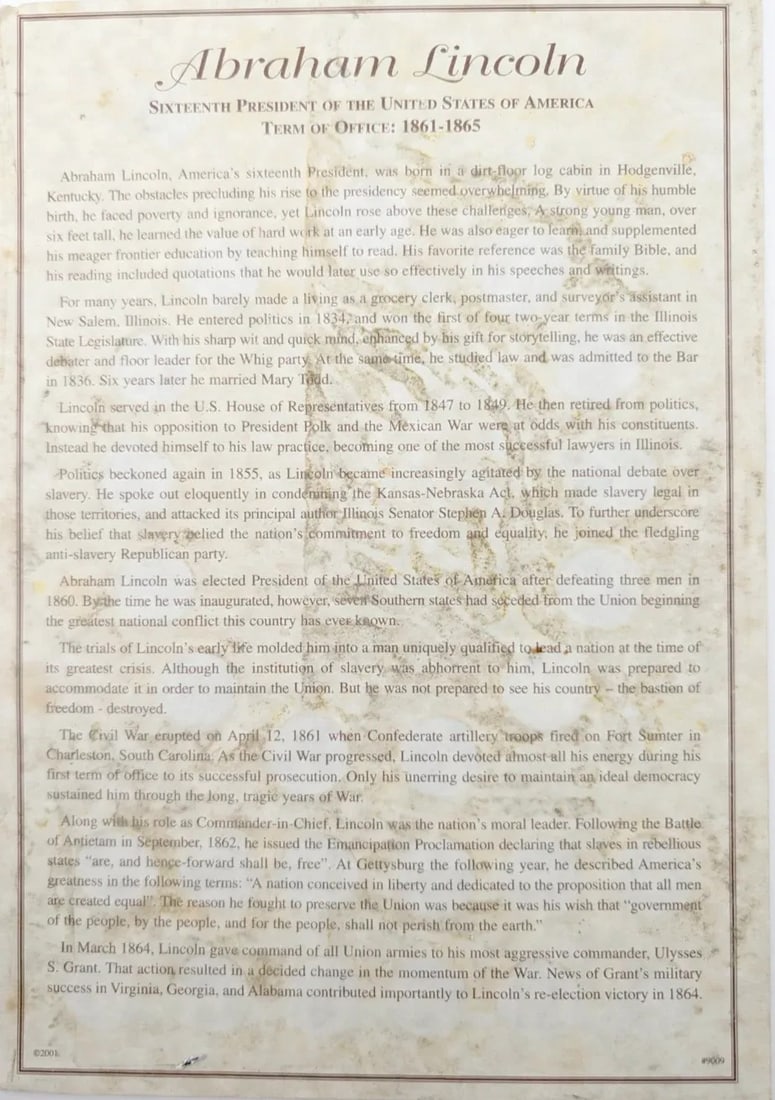 Abraham Lincoln
SIXTEENTH PRESIDENT OF THE UNITED STATES OF AMERICA
TERM OF OFFICE: 1861-1865
Abraham Lincoln, America's sixteenth President, was born in a dirt-floor log cabin in Hodgenville,
Kentucky. The obstacles precluding his rise to the presidency seemed overwhelming. By virtue of his humble
birth, he faced poverty and ignorance, yet Lincoln rose above these challenges. A strong young man, over
six feet tall, he learned the value of hard work at an early age. He was also eager to learn and supplemented
his meager frontier education by teaching himself to read. His favorite reference was the family Bible, and
his reading included quotations that he would later use so effectively in his speeches and writings.
For many years, Lincoln barely made a living as a grocery clerk, postmaster, and surveyor's assistant in
New Salem, Illinois. He entered politics in 1834, and won the first of four two-year terms in the Illinois
State Legislature. With his sharp wit and quick mind, enhanced by his gift for storytelling, he was an effective
debater and floor leader for the Whig party. At the same time, he studied law and was admitted to the Bar
in 1836. Six years later he married Mary Todd.
Lincoln served in the U.S. House of Representatives from 1847 to 1849. He then retired from politics,
knowing that his opposition to President Polk and the Mexican War were at odds with his constituents.
Instead he devoted himself to his law practice, becoming one of the most successful lawyers in Illinois.
Politics beckoned again in 1855, as Lincoln became increasingly agitated by the national debate over
slavery. He spoke out eloquently in condemning the Kansas-Nebraska Act, which made slavery legal in
those territories, and attacked its principal author Illinois Senator Stephen A. Douglas. To further underscore
his belief that slavery belied the nation's commitment to freedom and equality, he joined the fledgling
anti-slavery Republican party.
Abraham Lincoln was elected President of the United States of America after defeating three men in
1860. By the time he was inaugurated, however, seven Southern states had seceded from the Union beginning
the greatest national conflict this country has ever known.
The trials of Lincoln's early life molded him into a man uniquely qualified to lead a nation at the time of
its greatest crisis. Although the institution of slavery was abhorrent to him, Lincoln was prepared to
accommodate it in order to maintain the Union. But he was not prepared to see his country – the bastion of
freedom - destroyed.
The Civil War erupted on April 12, 1861 when Confederate artillery troops fired on Fort Sumter in
Charleston, South Carolina. As the Civil War progressed, Lincoln devoted almost all his energy during his
first term of office to its successful prosecution. Only his unerring desire to maintain an ideal democracy
sustained him through the long, tragic years of War.
Along with his role as Commander-in-Chief, Lincoln was the nation's moral leader. Following the Battle
of Antietam in September, 1862, he issued the Emancipation Proclamation declaring that slaves in rebellious
states "are, and hence-forward shall be, free". At Gettysburg the following year, he described America's
greatness in the following terms: "A nation conceived in liberty and dedicated to the proposition that all men
are created equal". The reason he fought to preserve the Union was because it was his wish that "government
of the people, by the people, and for the people, shall not perish from the earth."
In March 1864, Lincoln gave command of all Union armies to his most aggressive commander, Ulysses
S. Grant. That action resulted in a decided change in the momentum of the War. News of Grant's military
success in Virginia, Georgia, and Alabama contributed importantly to Lincoln's re-election victory in 1864.
©2001
#9009